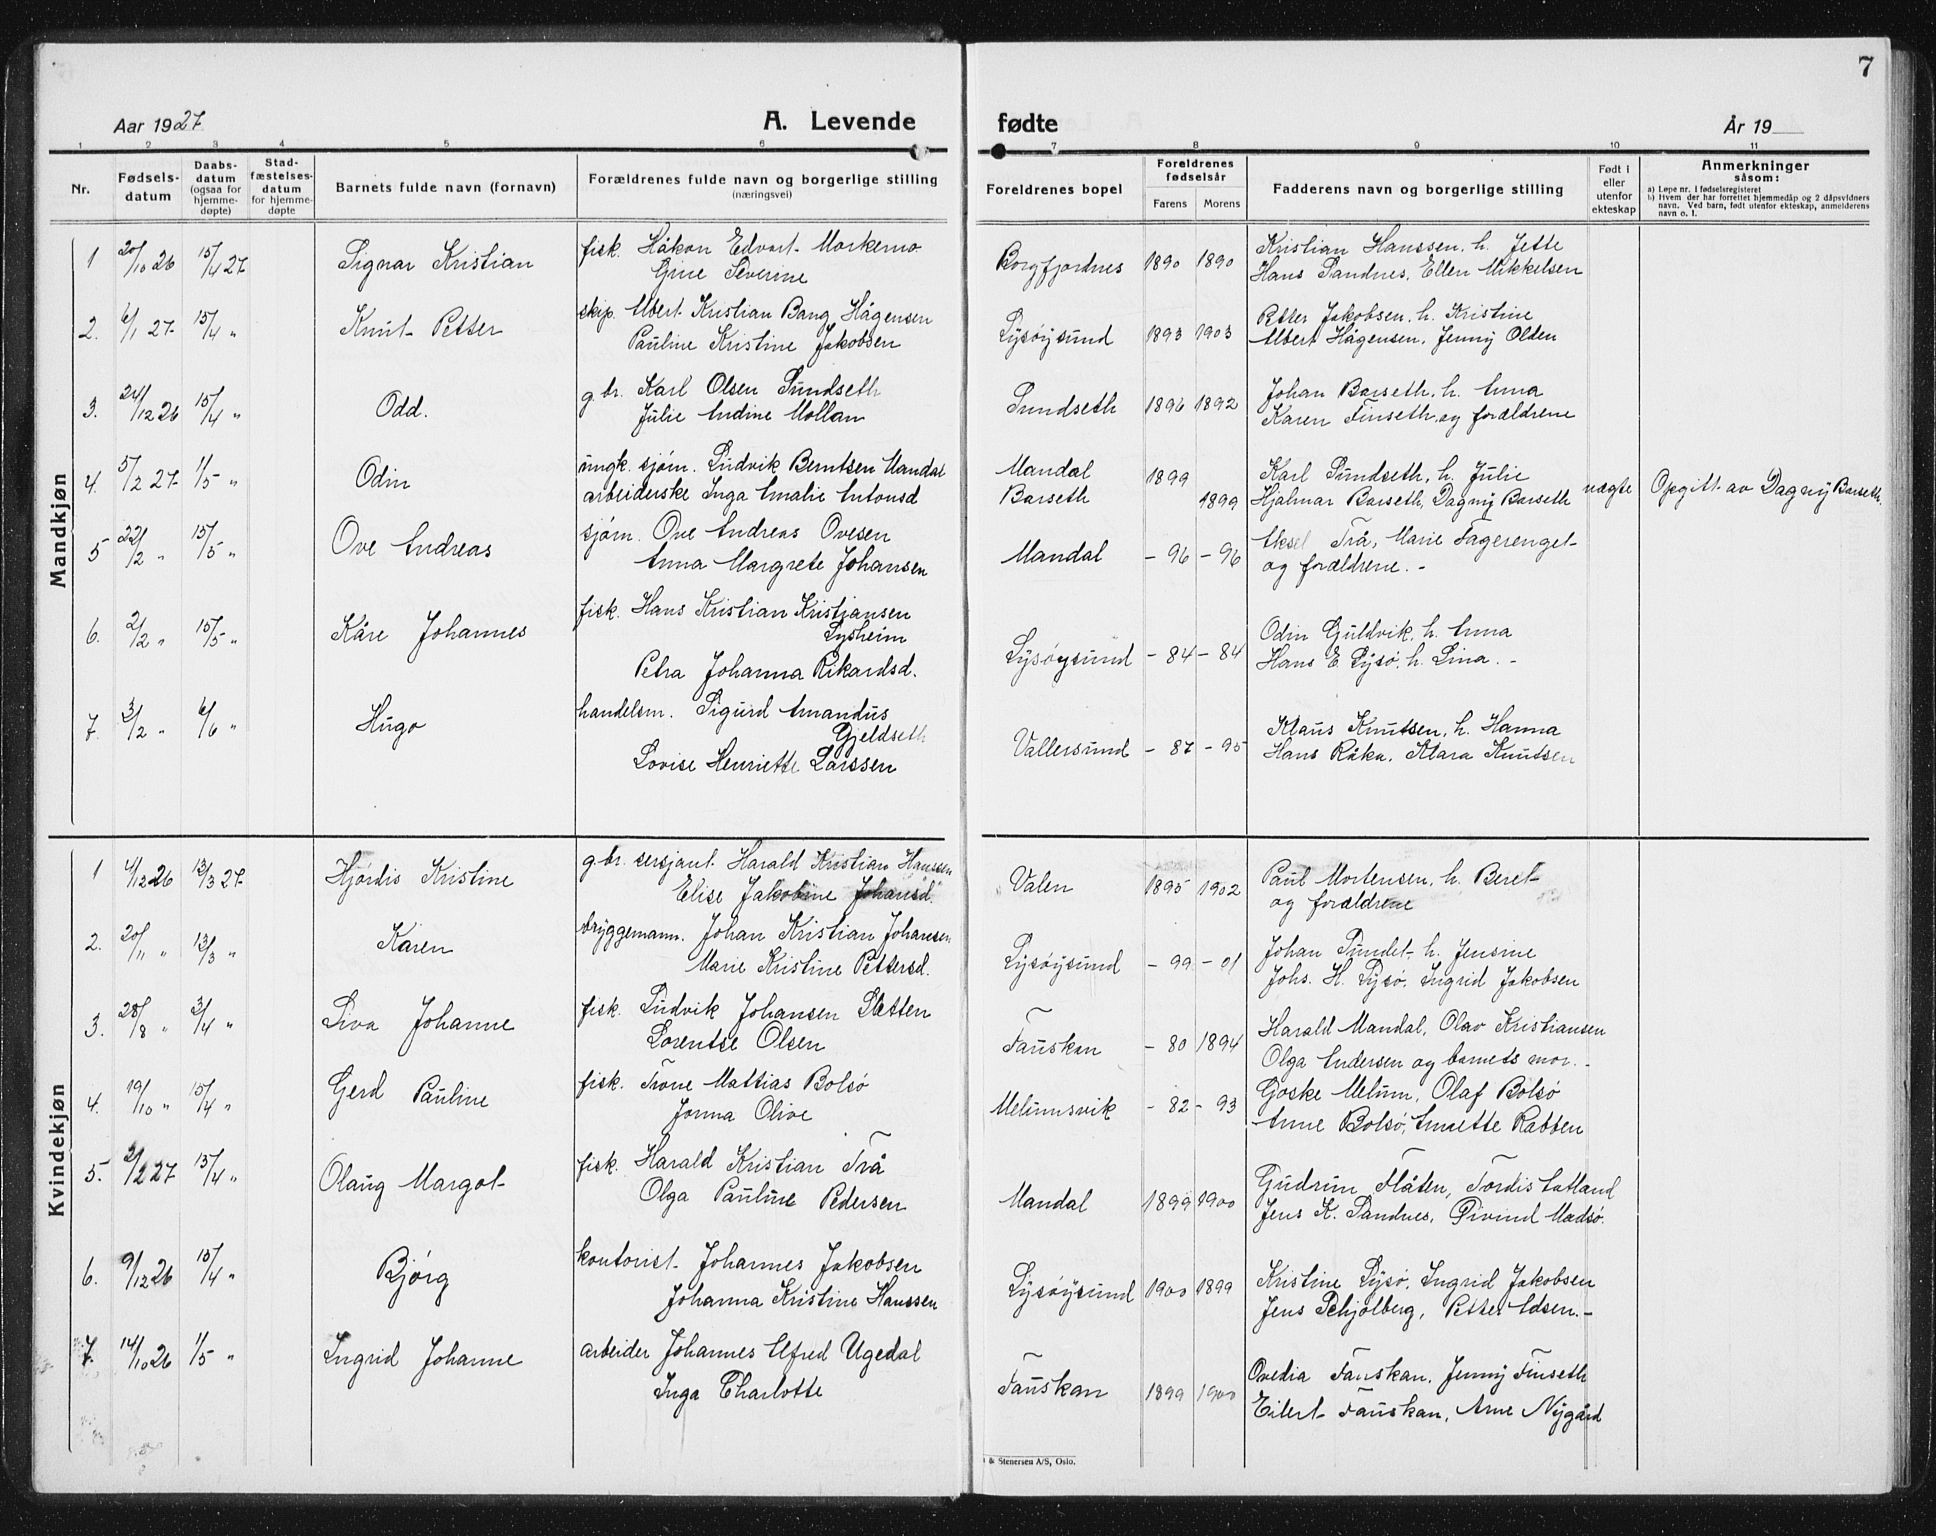 7
Aar 1927
A. Levende
fødte
År 19
1 2 3 4 5 6 7 8 9 10 11
Nr.
Fødsels-
datum
Daabs-
datum
(ogsaa for
hjemme-
døpte)
Stad-
fæstelses-
datum
for hjemme-
døpte
Barnets fulde navn (fornavn)
Forældrenes fulde navn og borgerlige stilling
(næringsvei)
Foreldrenes bopel
Foreldrenes
fødselsår
Farens Morens
Fadderens navn og borgerlige stilling
Født i
eller
utenfor
ekteskap
Anmerkninger
såsom:
a) Løpe nr. i fødselsregisteret
b) Hvem der har forrettet hjemmedåp og 2 dåpsvidners
navn. Ved barn, født utenfor ekteskap, anmelderens
navn o. l.
Mandkjøn
1 20/10 26 15/4 27 Signar Kristian fisk. Håkon Edvart Morkemo Borgfjordnes 1890 1890 Kristian Hanssen, h. Jette
Gine Severine Hans Sandnes, Ellen Mikkelsen
2. 6/1 27 15/4 „ Knut Petter skip. Albert Kristian Bang Hågensen Lysøysund 1893 1903 Petter Jakobsen, h. Kristine
Pauline Kristine Jakobsen Albert Hågensen, Jenny Olden
3. 24/12 26 15/4 „ Odd. g.br. Karl Olsen Sundseth Sundseth 1896 1892 Johan Barseth, h. Anna
Julie Andine Mollan Karen Finseth og forældrene
4. 5/2 27 1/5 „ Odin ungk. sjøm. Ludvik Berntsen Mandal Mandal 1899 Karl Sundseth, h. Julie
arbeiderske Inga Amalie Antonsd Barseth 1899 Hjalmar Barseth, Dagny Barseth uægte Opgitt av Dagny Barseth.
5 22/2 „ 15/5 „ Ove Andreas sjøm. Ove Andreas Ovesen Mandal - 96 - 96 Aksel Trå, Marie Fagerenget
Anna Margrete Johansen og forældrene. -
6. 2/2 „ 15/5 „ Kåre Johannes fisk. Hans Kristian Kristiansen
Lysheim Lysøysund - 84 - 84 Odin Guldvik, h. Anna
Petra Johanna Rikardsd. Hans E. Lysø, h. Lina. -
7. 3/2 „ 6/6 „ Hugo handelsm. Sigurd Amandus
Gjeldseth Vallersund - 87 - 95 Klaus Knutsen, h. Hanna
Lovise Henriette Larssen Hans Råka, Klara Knutsen
Kvindekjøn
1 4/12 26 13/3 27 Hjørdis Kristine g.br. sersjant Harald Kristian Hanssen Valen 1895 1902 Paul Mortensen, h. Beret
Elise Jakobine Johansd. og forældrene
2. 20/11 „ 13/3 „ Karen bryggemann. Johan Kristian Johansen Lysøysund - 99 - 01 Johan Sundet h. Jensine
Marie Kristine Pettersd. Johs. H. Lysø, Ingrid Jakobsen
3. 28/8 „ 3/4 „ Siva Johanne fisk. Ludvik Johansen Sletten Fauskan - 80 1894 Harald Mandal, Olav Kristiansen
Lorentse Olsen Olga Andersen og barnets mor. -
4. 19/10 „ 15/4 „ Gerd Pauline fisk. Trone Mattias Bolsø Melumsvik - 82 - 93 Goske Melum, Olaf Bolsø
Jonna Olive Anne Bolsø, Annette Rabben
5. 2/2 27 15/4 „ Olaug Margot fisk. Harald Kristian Trå Mandal 1899 1900 Gudrun Flåten, Tordis Aatland
Olga Pauline Pedersen Jens K. Sandnes, Øivind Madsø.
6. 9/12 26 15/4 „ Bjørg kontorist Johannes Jakobsen Lysøysund 1900 1899 Kristine Lysø, Ingrid Jakobsen
Johanna Kristine Hanssen Jens Schjølberg, Petter Edsen. -
7. 14/10 26 1/5 „ Ingrid Johanne arbeider Johannes Alfred Ugedal Fauskan 1899 1900 Ovedia Fauskan, Jenny Finseth
Inga Charlotte Eilert Fauskan, Arne Nygård
& Stenersen A/S, Oslo.